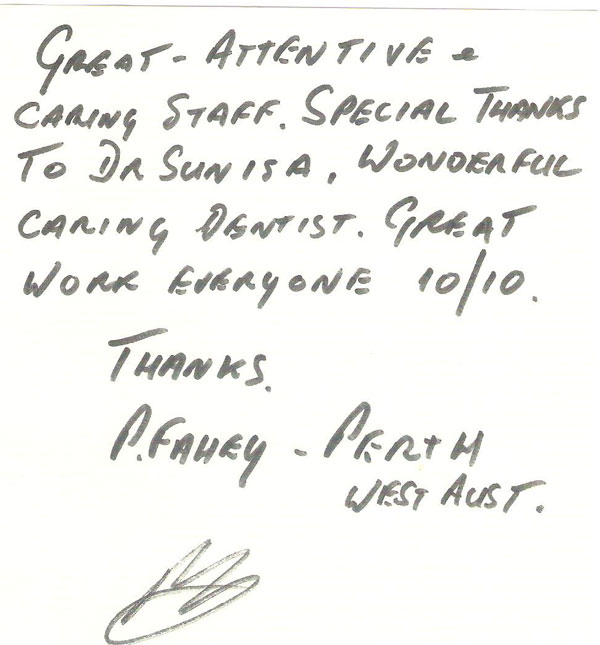 GREAT - ATTENTIVE &
CARING STAFF. SPECIAL THANKS
TO DR SUNISA, WONDERFUL
CARING DENTIST. GREAT
WORK EVERYONE 10/10.
THANKS.
P. FAHEY - PERTH
WEST AUST.